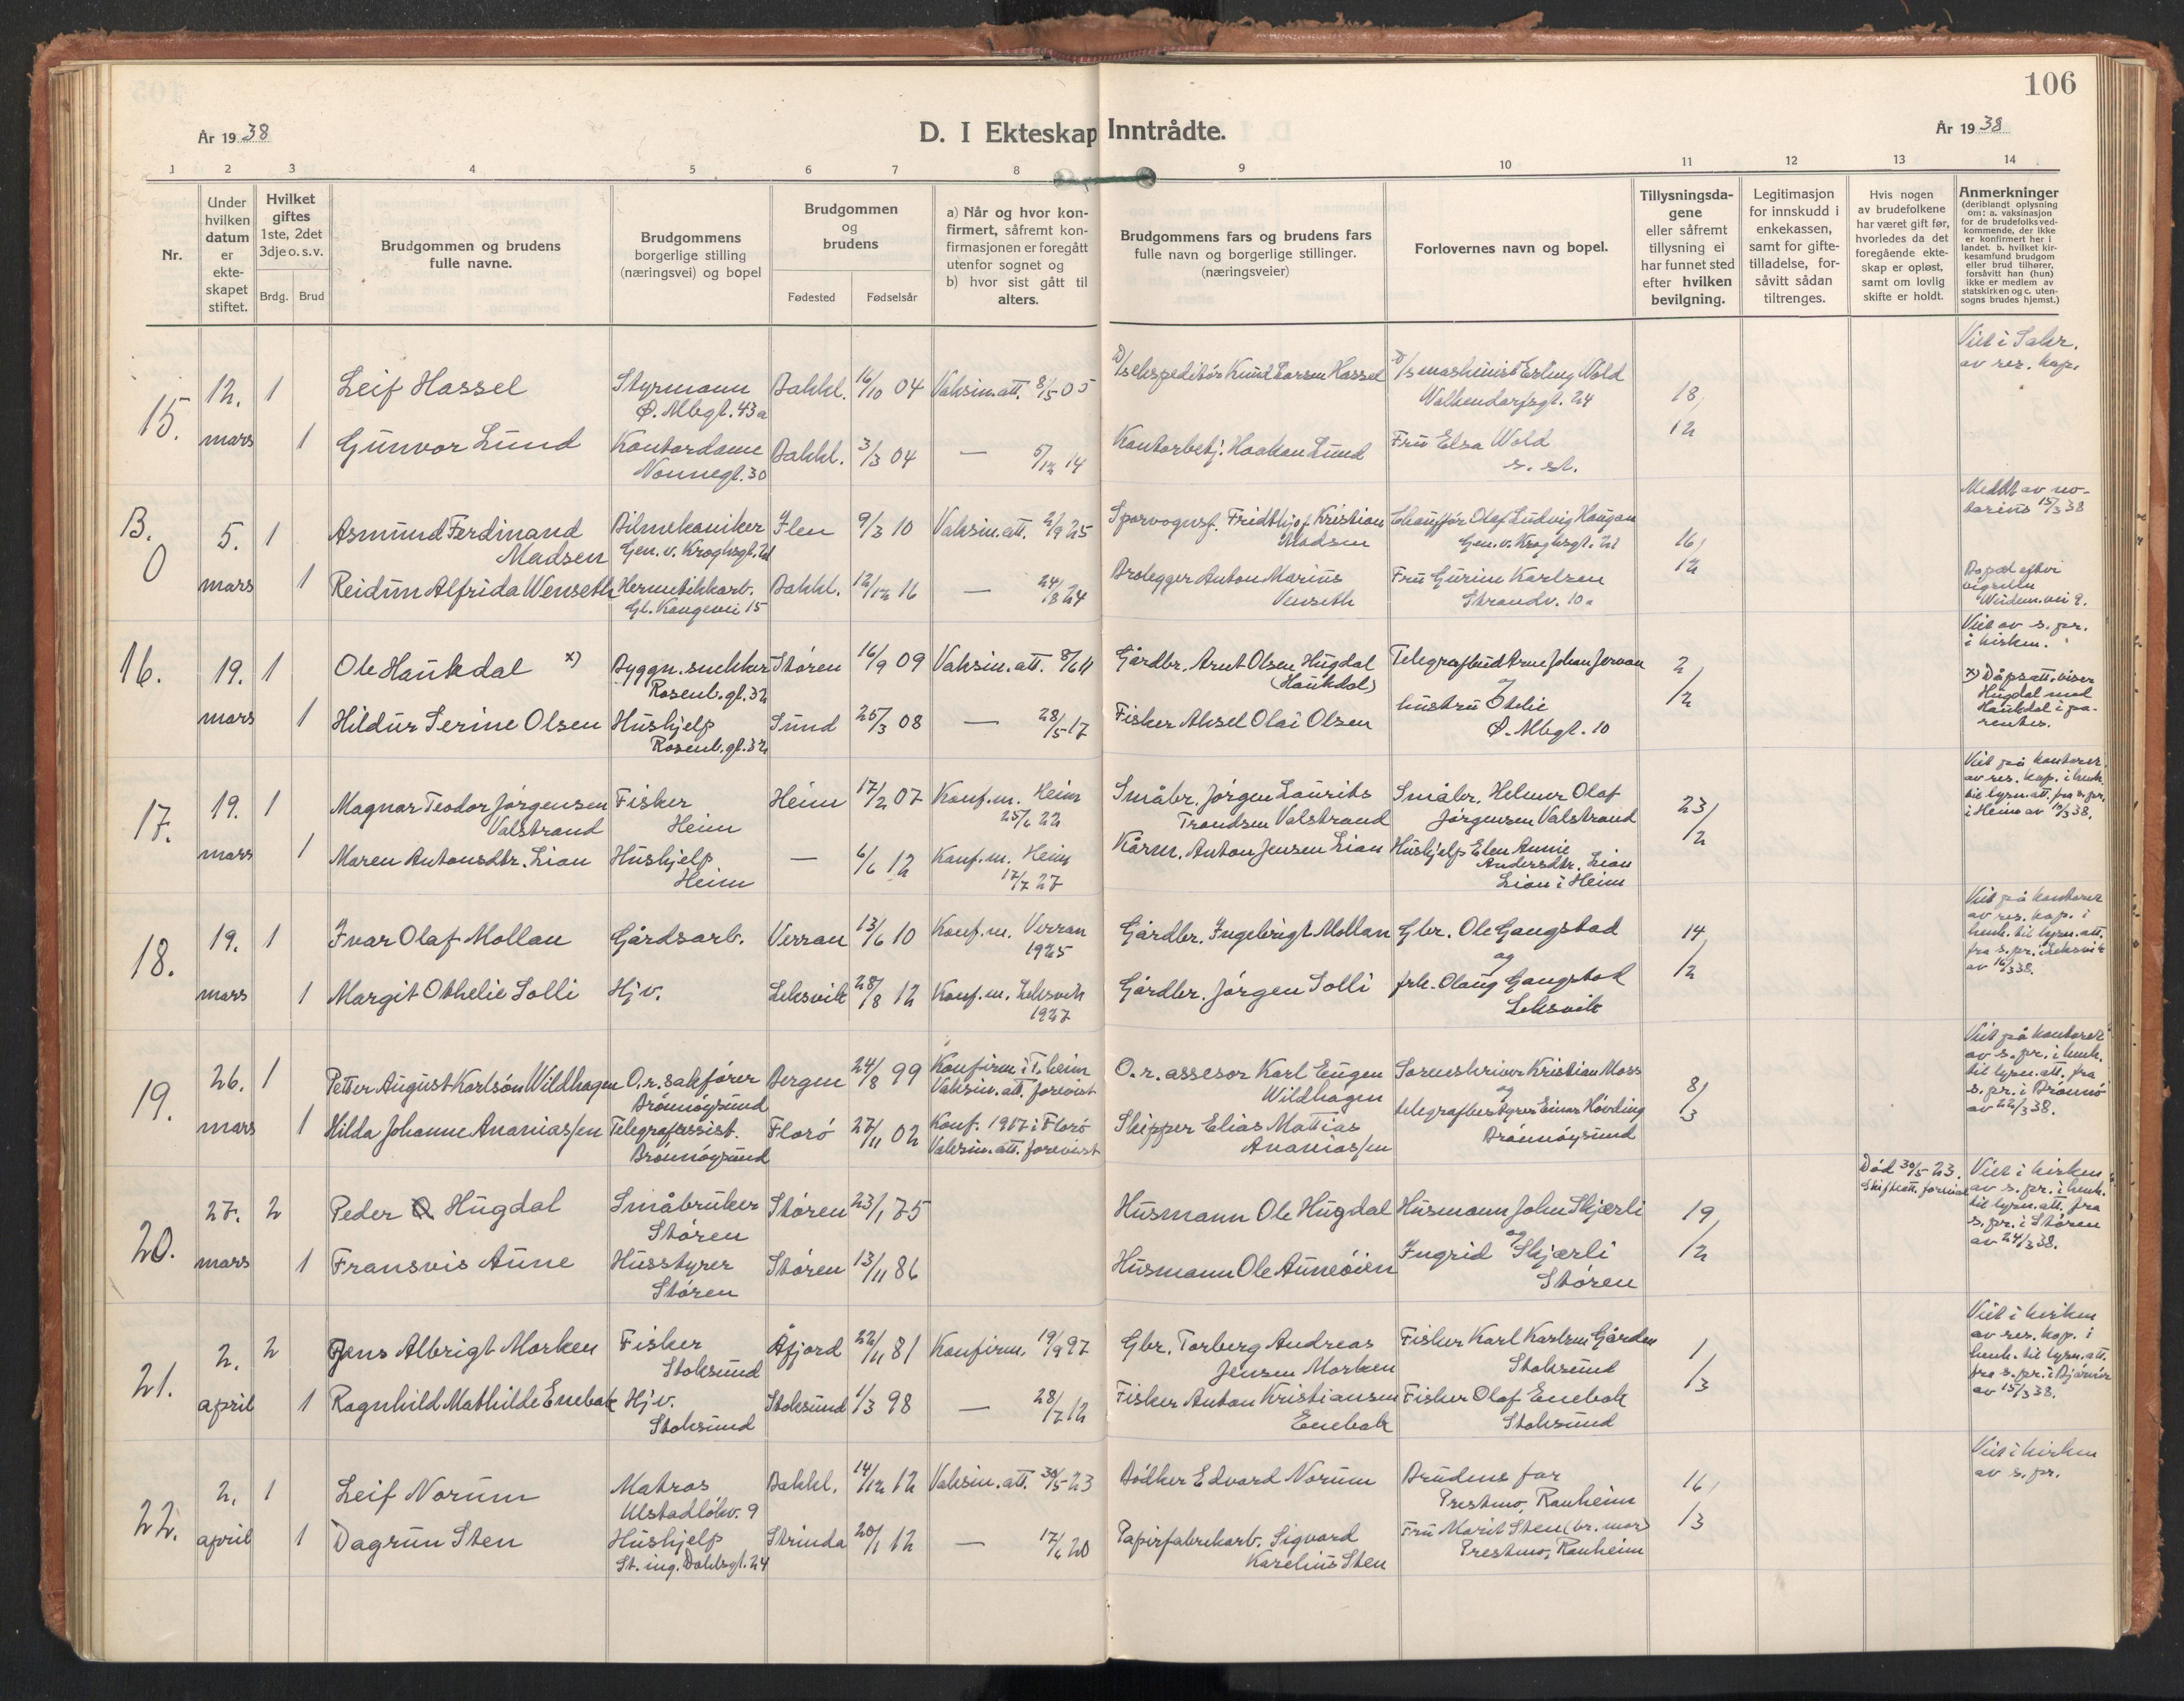 106
År 1938
D. I Ekteskap Inntrådte.
År 1938
1 2 3 4 5 6 7 8 9 10 11 12 13 14
Nr.
Under hvilken datum er ekte-skapet stiftet.
Hvilket giftes 1ste, 2det 3dje o. s. v.
Brdg. Brud
Brudgommen og brudens fulle navne.
Brudgommens borgerlige stilling (næringsvei) og bopel
Brudgommen og brudens
Fødested Fødselsår
a) Når og hvor kon-firmert, såfremt kon-firmasjonen er foregått utenfor sognet og b) hvor sist gått til alters.
Brudgommens fars og brudens fars fulle navn og borgerlige stillinger. (næringsveier)
Forlovernes navn og bopel.
Tillysningsda-gene eller såfremt tillysning ei har funnet sted efter hvilken bevilgning.
Legitimasjon for innskudd i enkekassen, samt for gifte-tilladelse, for-såvitt sådan tiltrenges.
Hvis nogen av brudefolkene har været gift før, hvorledes da det foregående ekte-skap er opløst, samt om lovlig skifte er holdt.
Anmerkninger (deriblandt oplysning om: a. vaksinasjon for de brudefolks ved-kommende, der ikke er konfirmert her i landet. b. hvilket kir-kesamfund brudgom eller brud tilhører, forsåvitt han (hun) ikke er medlem av statskirken og c. uten-sogns brudes hjemst.)
15. 12. mars
1 Leif Hassel Styrmann Bakkl. 16/10 04 Vaksin.att. 8/5 05 D/sekspeditør Knud Larsen Hassel D/s maskinist Erling Wold 18/12
Ø. Mbgt. 43a Walkendorfsgt. 24
1 Gunvor Lund Kontordame Bakkl. 3/3 04 — 5/12 14 Kontorbetj. Haakon Lund Fru Elsa Wold
Nonnegt. 30 s. st.
Viet i Sakr.
av res. kap.
B. 0 5. mars
1 Asmund Ferdinand Bilmekaniker Ilen 9/3 10 Vaksin.att. 2/9 25 Sporvognsf. Fridthjof Kristian Chauffør Olaf Ludvig Haugan 16/12
Madsen Gen. v. Kroghsgt. 21 Madsen Gen. v. Kroghsgt. 21
1 Reidun Alfrida Wenseth Hermetikkarb. Bakkl. 12/12 16 — 24/8 24 Brolegger Anton Marius Fru Gurine Karlsen
Gl. Kongevei 15 Venseth Strandv. 10a
Meddt av no-
tarius 15/3 38
Bopæl efter
vigselen
Weidem.vei 9.
16. 19. mars
1 Ole Haukdal x) Byggn. snekker Støren 16/9 09 Vaksin.att. 8/6 11 Gårdbr. Arnt Olsen Hugdal Telegrafbud Arne Johan Jervan 2/12
Rosenb. gt. 32 (Haukdal) og
1 Hildur Serine Olsen Hushjelp Sund 25/3 08 — 28/5 17 Fisker Aksel Olai Olsen hustru Otelie
Rosenb. gt. 32 Ø. Mbgt. 10
Viet av s. pr.
i kirken.
x) Dåpsatt. viser
Hugdal med
Haukdal i pa-
rentes.
17. 19. mars
1 Magnar Teodor Jørgensen Fisker Heim 17/2 07 Konf. m. Heim Småbr. Jørgen Laurits Småbr. Helmer Olaf 23/2
Valstrand Heim 25/6 22 Trondsen Valstrand Jørgensen Valstrand
1 Maren Antonsdtr. Lian Hushjelp — 6/6 12 Konf. m. Heim Kårm. Anton Jensen Lian Hushjelp Elen Annie
Heim 17/7 27 Andersdtr. Lian
Lian i Heim
Viet på kontoret
av res. kap. i henh.
til lysn.att. fra s. pr.
i Heim av 12/3 38.
18. 19. mars
1 Ivar Olaf Mollan Gårdsarb. Verran 13/6 10 Konf. m. Verran Gårdbr. Ingebrigt Mollan Gbr. Ole Gangstad 14/2
1925 og
1 Margit Othelie Solli Hjv. Leksvik 28/8 12 Konf. m. Leksvik Gårdbr. Jørgen Solli frk. Olaug Gangstad
1927 Leksvik
Viet på kontoret
av res. kap. i
henh. til lysn.att.
fra s. pr. i Leksvik
av 16/3 38.
19. 26. mars
1 Petter August Karlsøn Wildhagen O.r. sakfører Bergen 24/8 99 Konfirm i T.heim O. r. assesor Karl Eugen Sorenskriver Kristian Moss 8/3
Brönnøysund Vaksin. att. forevist Wildhagen og
1 Hilda Johanne Ananiassen Telegrafassist. Florø 27/11 02 Konf. 1917 i Florø Skipper Elias Mattias telegrafbestyrer Einar Høvding
Brønnøysund Vaksin. att. forevist Ananiassen Brønnøysund
Viet på kontoret
av s. pr. i henh.
til lysn. att. fra
s. pr. i Brønnø
av 22/3 38.
20. 27. mars
2 Peder O Hugdal Småbruker Støren 23/1 75 Husmann Ole Hugdal Husmann John Skjærli 19/2
Støren og
1 Fransvis Aune Husstyrer Støren 13/11 86 Husmann Ole Auneøien Ingrid Skjærli
Støren Støren
Død 30/5 23.
Skifteatt. forevist
Viet i kirken
av s. pr. i henh.
til lysn. att. fra
s. pr. i Støren
av 24/3 38.
21. 2. april
2 Jens Albrigt Morken Fisker Åfjord 22/11 81 Konfirm. 19/9 97 Gbr. Torberg Andreas Fisker Karl Karlsen Gården 1/3
Stoksund Jensen Morken Stoksund
1 Ragnhild Mathilde Enebak Hjv. Stoksund 1/3 98 — 28/7 12 Fisker Anton Kristiansen Fisker Olaf Enebak
Stoksund Enebak Stoksund
Viet i kirken
av res. kap. i
henh. til lysn. att.
fra s. pr. i Bjørnør
av 15/3 38.
22. 2. april
1 Leif Norum Matros Bakkl. 14/12 12 Vaksin. att. 30/5 23 Bødker Edvard Norum Brudens far 16/3
Ulstadløkv. 9 Prestmo, Ranheim
1 Dagrun Sten Hushjelp Strinda 20/1 12 — 17/6 20 Papirfabrikarb. Sigvard Fru Marit Sten (br. mor)
St. ing. Dahlsgt. 24 Karelius Sten Prestmo, Ranheim
Viet i kirken
av s. pr.